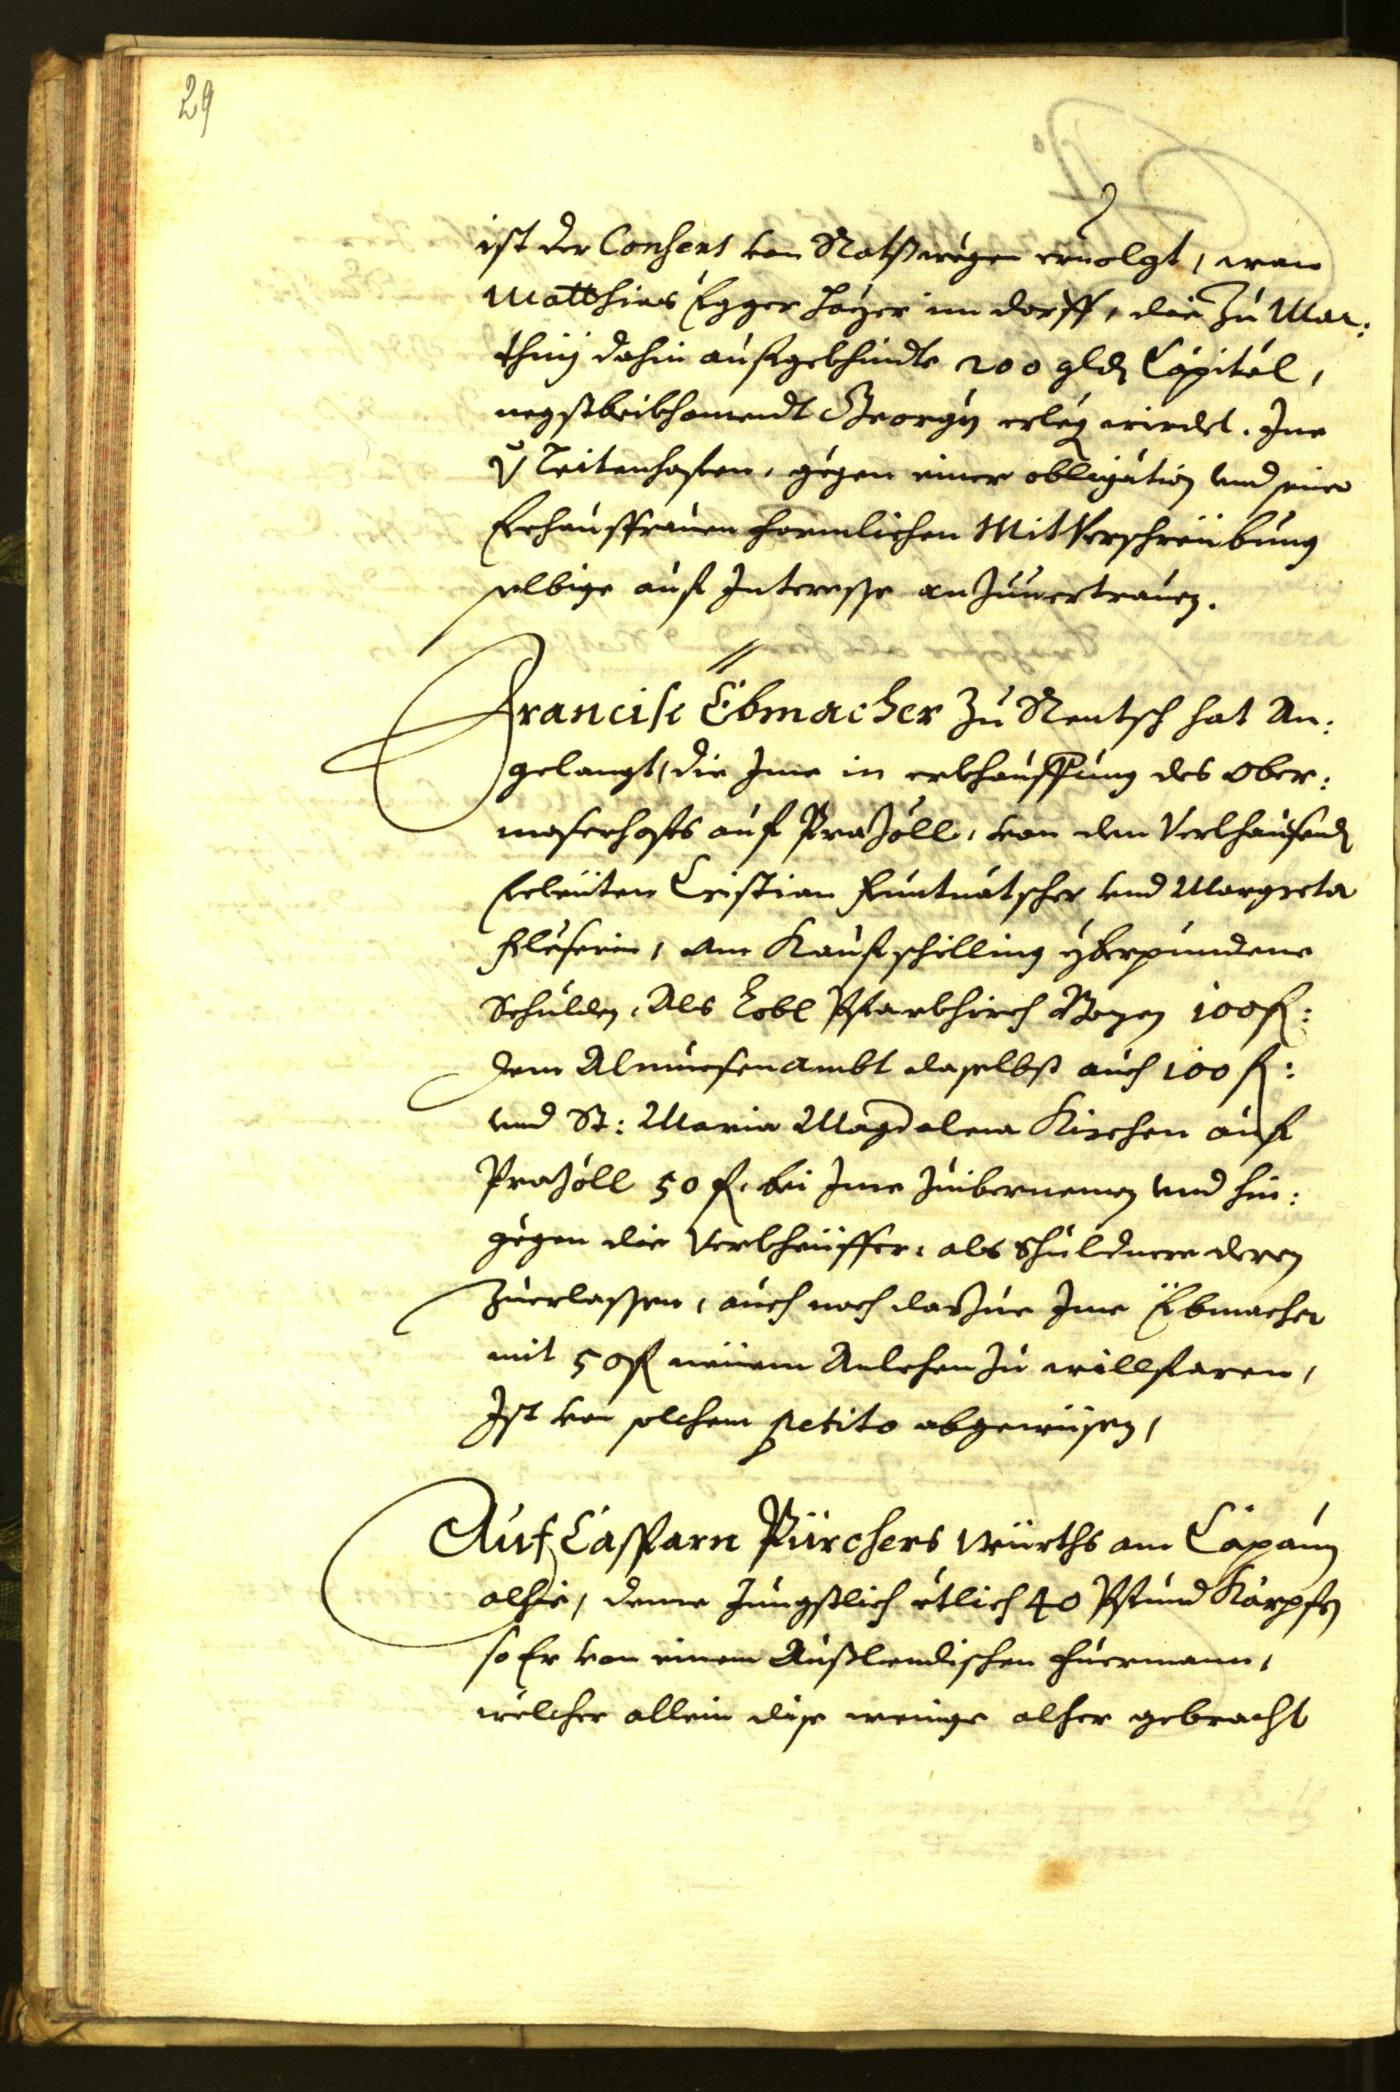 29
ist der Consens von Ratßwegen ervolgt, wan
Matthias Egger Paÿer im dorff, die zu Mar:
thinj dahin aufgekhindte 200 gld Capital,
negstbeikhomendt Georgÿ erleg wirdet. Ime
Leitenhofern, gegen einer obligation und seiner
Eehausfrauen formlichen Mitverschreibung
selbige auf Interesse anzuvertrauen.
Francisc Ebmacher zu Rentsch hat An:
gelangt, die Ime in erkhauffung des Ober:
moserhofs auf Prazöll, von dem Verkhaufend
Eeleüten Cristian Funtnatscher und Margreta
Kloserin, am Kaufschilling yberpundene
Schulden, Als Lobl Pfarkhirch Bozen 100 f:
dem Almuesenambt daselbst auch 100 f:
und St: Maria Magdalena Kirchen auf
Prazöll 50 f. bei Ime zuibernemen und hin:
gegen die Verkheüffer: als schuldnere deren
zuerlassen, auch noch darzue Ime Ebmacher
mit 50 f neüem Anlehen zu willfaren,
Ist von solchem petito abgewisen,
Auf Casparn Pürchers Würths am Capaun
alhie, deme jungstlich etlich 40 Pfund Karpfen
so Er von einem Außlendischen fuermann,
welcher allein dise wenige alher gebracht